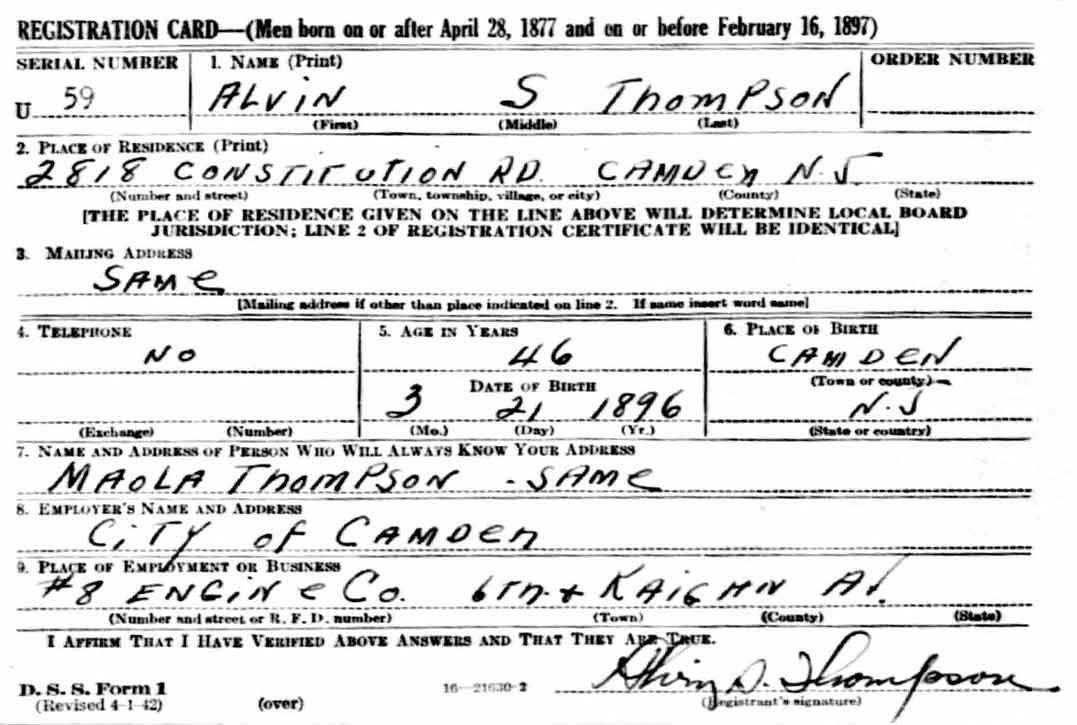 REGISTRATION CARD—(Men born on or after April 28, 1877 and on or before February 16, 1897)
SERIAL NUMBER 1. NAME (Print) ORDER NUMBER
U 59 ALVIN S THOMPSON
(First) (Middle) (Last)
2. PLACE OF RESIDENCE (Print)
2818 CONSTITUTION RD. CAMDEN N.J.
(Number and street) (Town, township, village, or city) (County) (State)
[THE PLACE OF RESIDENCE GIVEN ON THE LINE ABOVE WILL DETERMINE LOCAL BOARD
JURISDICTION; LINE 2 OF REGISTRATION CERTIFICATE WILL BE IDENTICAL]
3. MAILING ADDRESS
SAME
[Mailing address if other than place indicated on line 2. If same insert word same]
4. TELEPHONE 5. AGE IN YEARS 6. PLACE OF BIRTH
NO 46 CAMDEN
DATE OF BIRTH (Town or county)
3 21 1896 N.J
(Exchange) (Number) (Mo.) (Day) (Yr.) (State or country)
7. NAME AND ADDRESS OF PERSON WHO WILL ALWAYS KNOW YOUR ADDRESS
MAOLA THOMPSON - SAME
8. EMPLOYER'S NAME AND ADDRESS
CITY OF CAMDEN
9. PLACE OF EMPLOYMENT OR BUSINESS
#8 ENGINE CO. 6TH. + KAIGHN AV.
(Number and street or R. F. D. number) (Town) (County) (State)
I AFFIRM THAT I HAVE VERIFIED ABOVE ANSWERS AND THAT THEY ARE TRUE.
D. S. S. Form 1 16—21630-2 Alvin S. Thompson
(Revised 4-1-42) (over) (Registrant's signature)